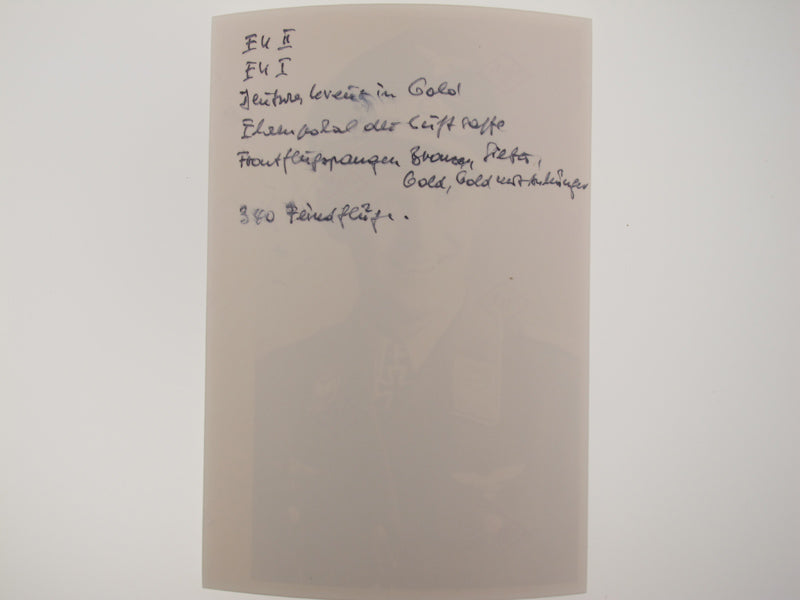 EK II
EK I
Deutsches Kreuz in Gold
Ehrenpokal der Luftwaffe
Frontflugspangen Bronze, Silber,
Gold, Gold mit Anhänger
380 Feindflüge.